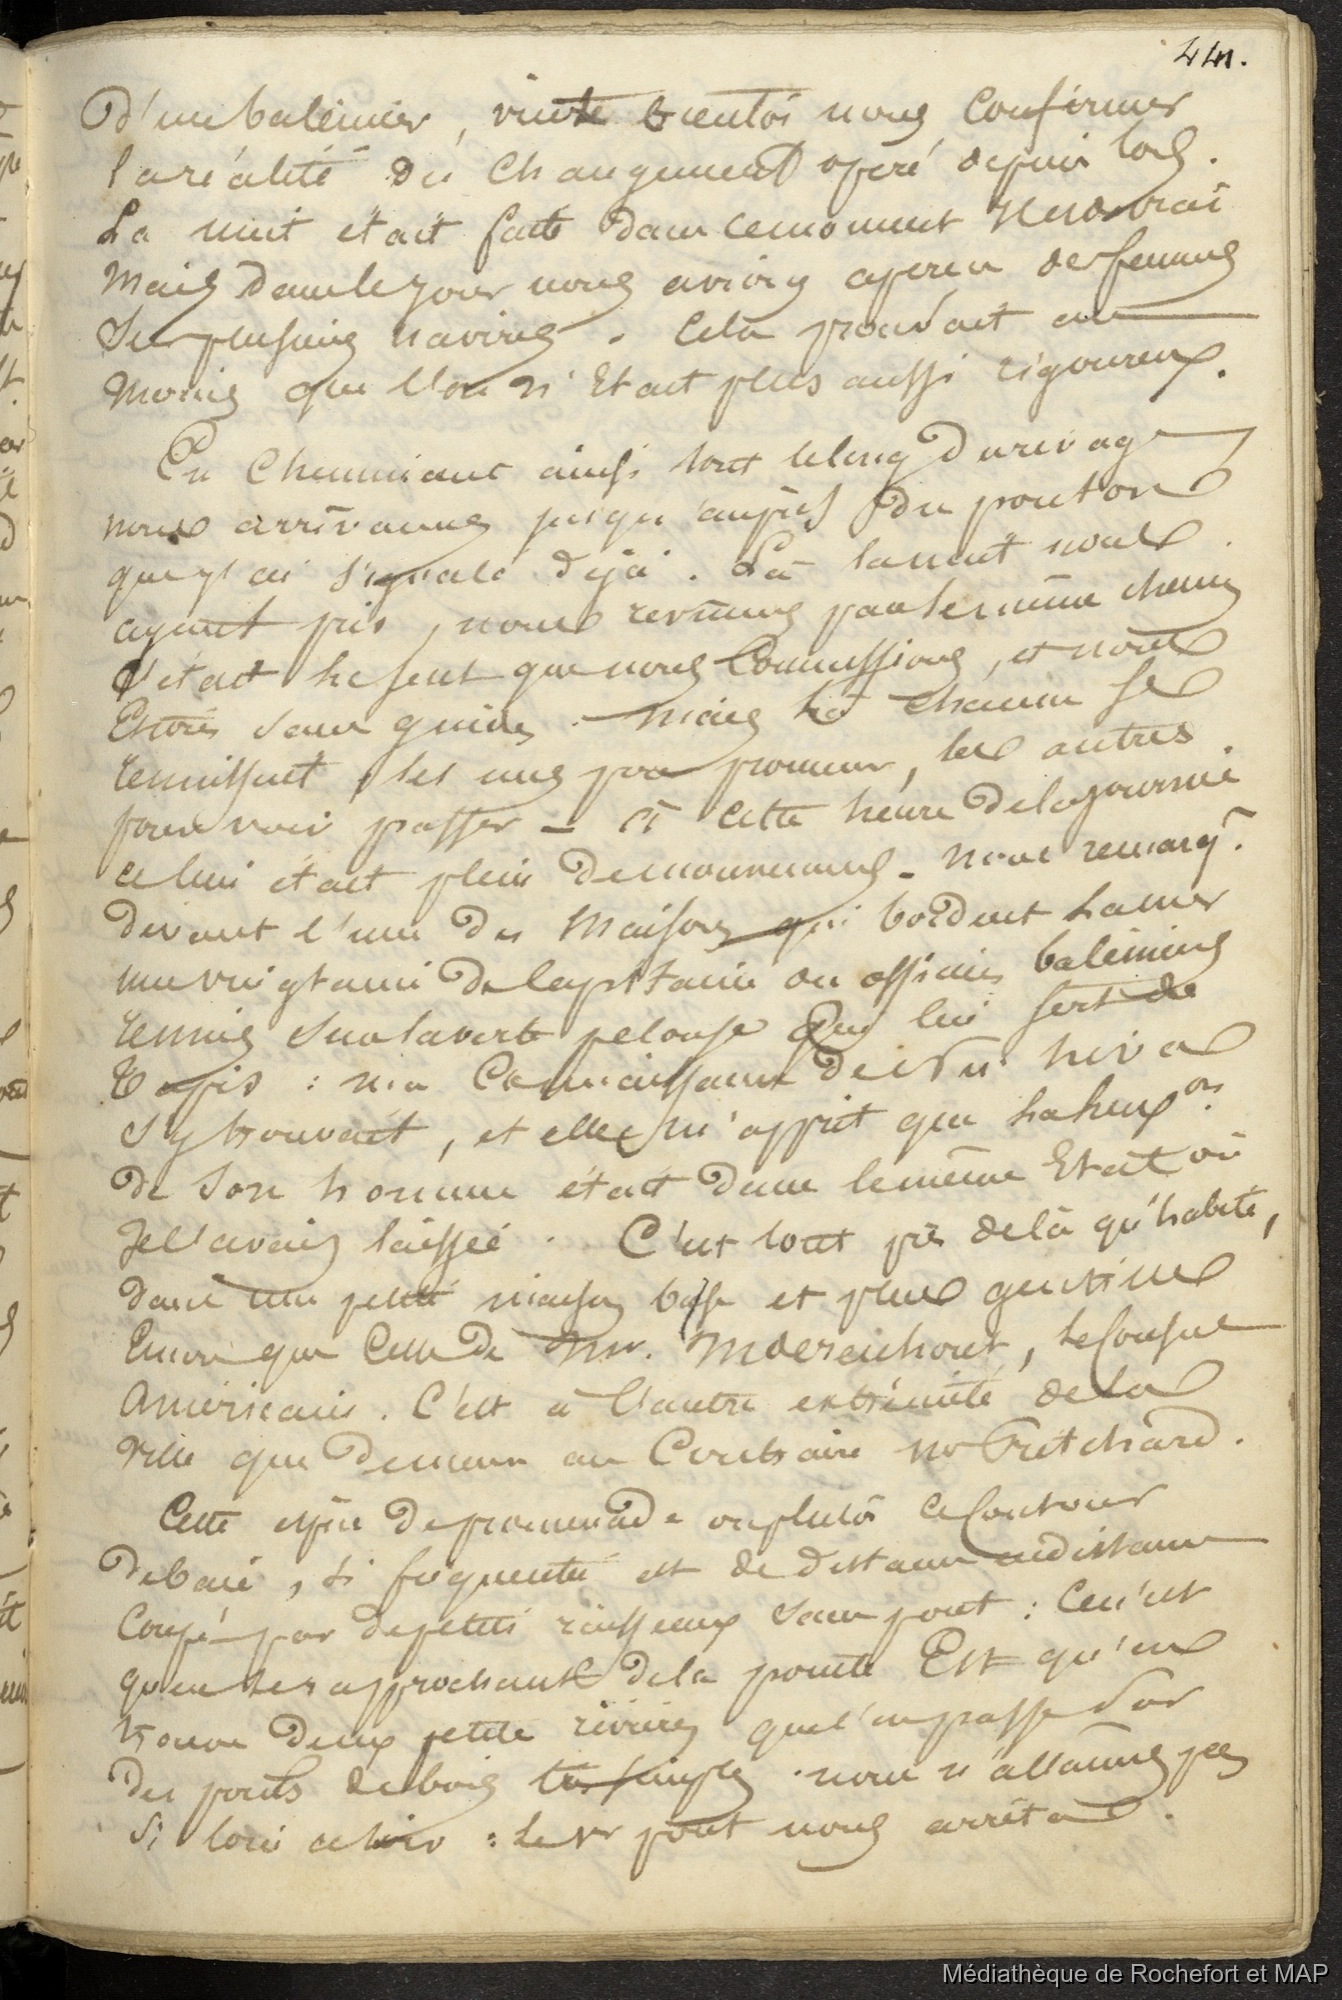 441.
D'un baleinier, vinrent bientôt nous confirmer
la réalité du changement opéré depuis lors.
La nuit était faite dans ce moment il est vrai
mais dans le jour nous avions aperçu des femmes
sur plusieurs navires. Cela prouvait au
moins que l'on n'était plus aussi rigoureux.
En cheminant ainsi tout le long du rivage
nous arrivames jusqu'auprès du ponton
que j'ai signalé déjà. Là la nuit nous
ayant pris, nous revinmes par le même chemin
c'était le seul que nous connussions, et nous
étions sans guides. mais le chemin se
remplissait, les uns pour promener, les autres
pour voir passer - à cette heure de la journée
celui était plein de mouvement - nous remarq.
devant l'une des maisons qui bordent la mer
une vingtaine de capitaines ou officiers baleiniers
réunis sur la verte pelouse qui lui sert de
tapis : ma connaissance de Nu-hiva
s'y trouvait, et elle m'apprit que la lux.on
de son homme était dans le même état où
je l'avais laissée. C'est tout près de là qu'habite,
dans une petite maison basse et plus gentille
encore que celle de Mr. Moerenhout, le Consul
américain. C'est à l'autre extrémité de la
ville que demeure au contraire Mr Pritchard.
Cette espèce de promenade ou plutôt ce contour
de baie, si fréquenté est de distance en distance
coupé par de petits ruisseaux sans pont : ce n'est
qu'en se rapprochant de la pointe Est qu'on
trouve deux petite rivières que l'on passe sur
des ponts de bois très simples. nous n'allames pas
si loin ce soir : le 1er pont nous arrêta.
Médiathèque de Rochefort et MAP